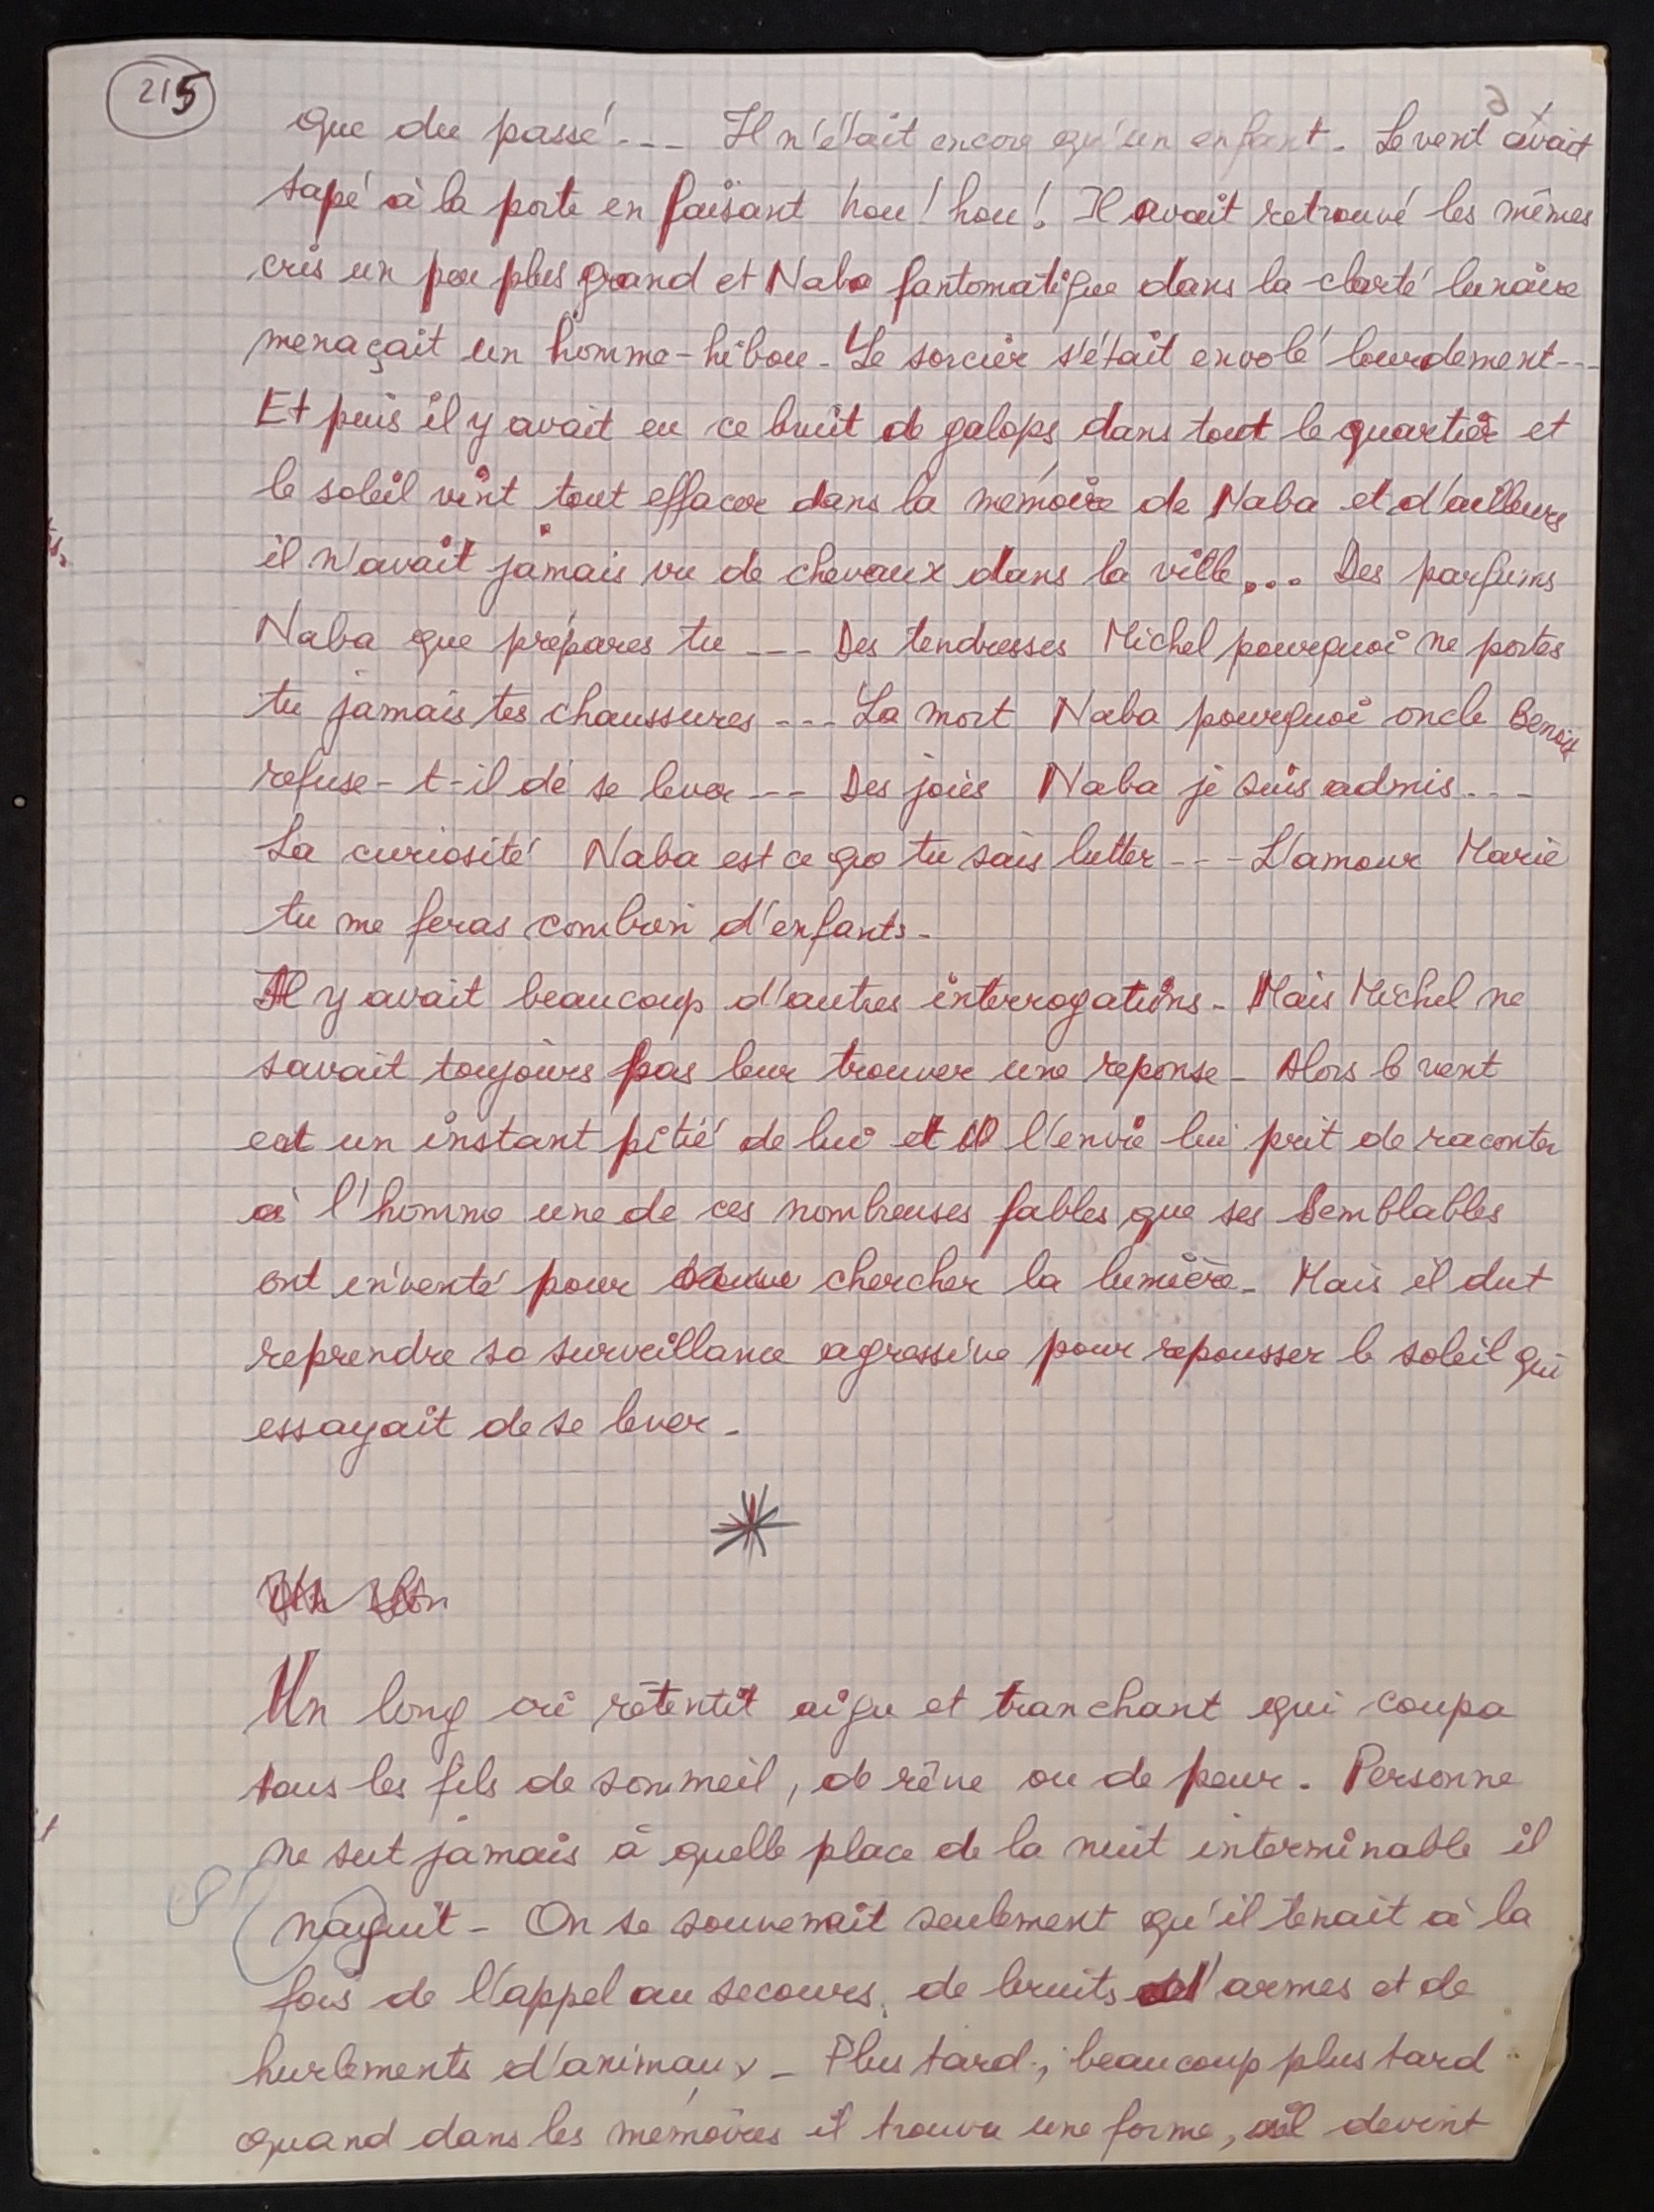 215
que du passé --- Il n'était encore qu'un enfant. Le vent avait
tapé à la porte en faisant hou! hou! Il avait retrouvé les mêmes
cris un peu plus grand et Naba fantomatique dans la clarté lunaire
menaçait un homme-hibou. Le sorcier s'était envolé lourdement---
Et puis il y avait eu ce bruit de galops dans tout le quartier et
le soleil vint tout effacer dans la mémoire de Naba et d'ailleurs
il n'avait jamais vu de chevaux dans la ville... Des parfums
Naba que prépares tu --- Des tendresses Michel pourquoi ne portes
tu jamais tes chaussures --- La mort Naba pourquoi oncle Benoit
refuse-t-il de se lever --- Des joies Naba je suis admis ---
La curiosité Naba est ce que tu sais lutter --- L'amour Marie
tu me feras combien d'enfants.
Il y avait beaucoup d'autres interrogations. Mais Michel ne
savait toujours pas leur trouver une reponse. Alors le vent
eut un instant pitié de lui et l'envie lui prit de raconter
à l'homme une de ces nombreuses fables que ses semblables
ont inventé pour chercher la lumière. Mais il dut
reprendre sa surveillance agressive pour repousser le soleil qui
essayait de se lever.
Un long cri retentit aigu et tranchant qui coupa
tous les fils de sommeil, de rêve ou de peur. Personne
ne sut jamais à quelle place de la nuit interminable il
naquit. On se souvenait seulement qu'il tenait à la
fois de l'appel au secours, de bruits d'armes et de
hurlements d'animaux. Plus tard, beaucoup plus tard
quand dans les mémoires il trouva une forme, il devint